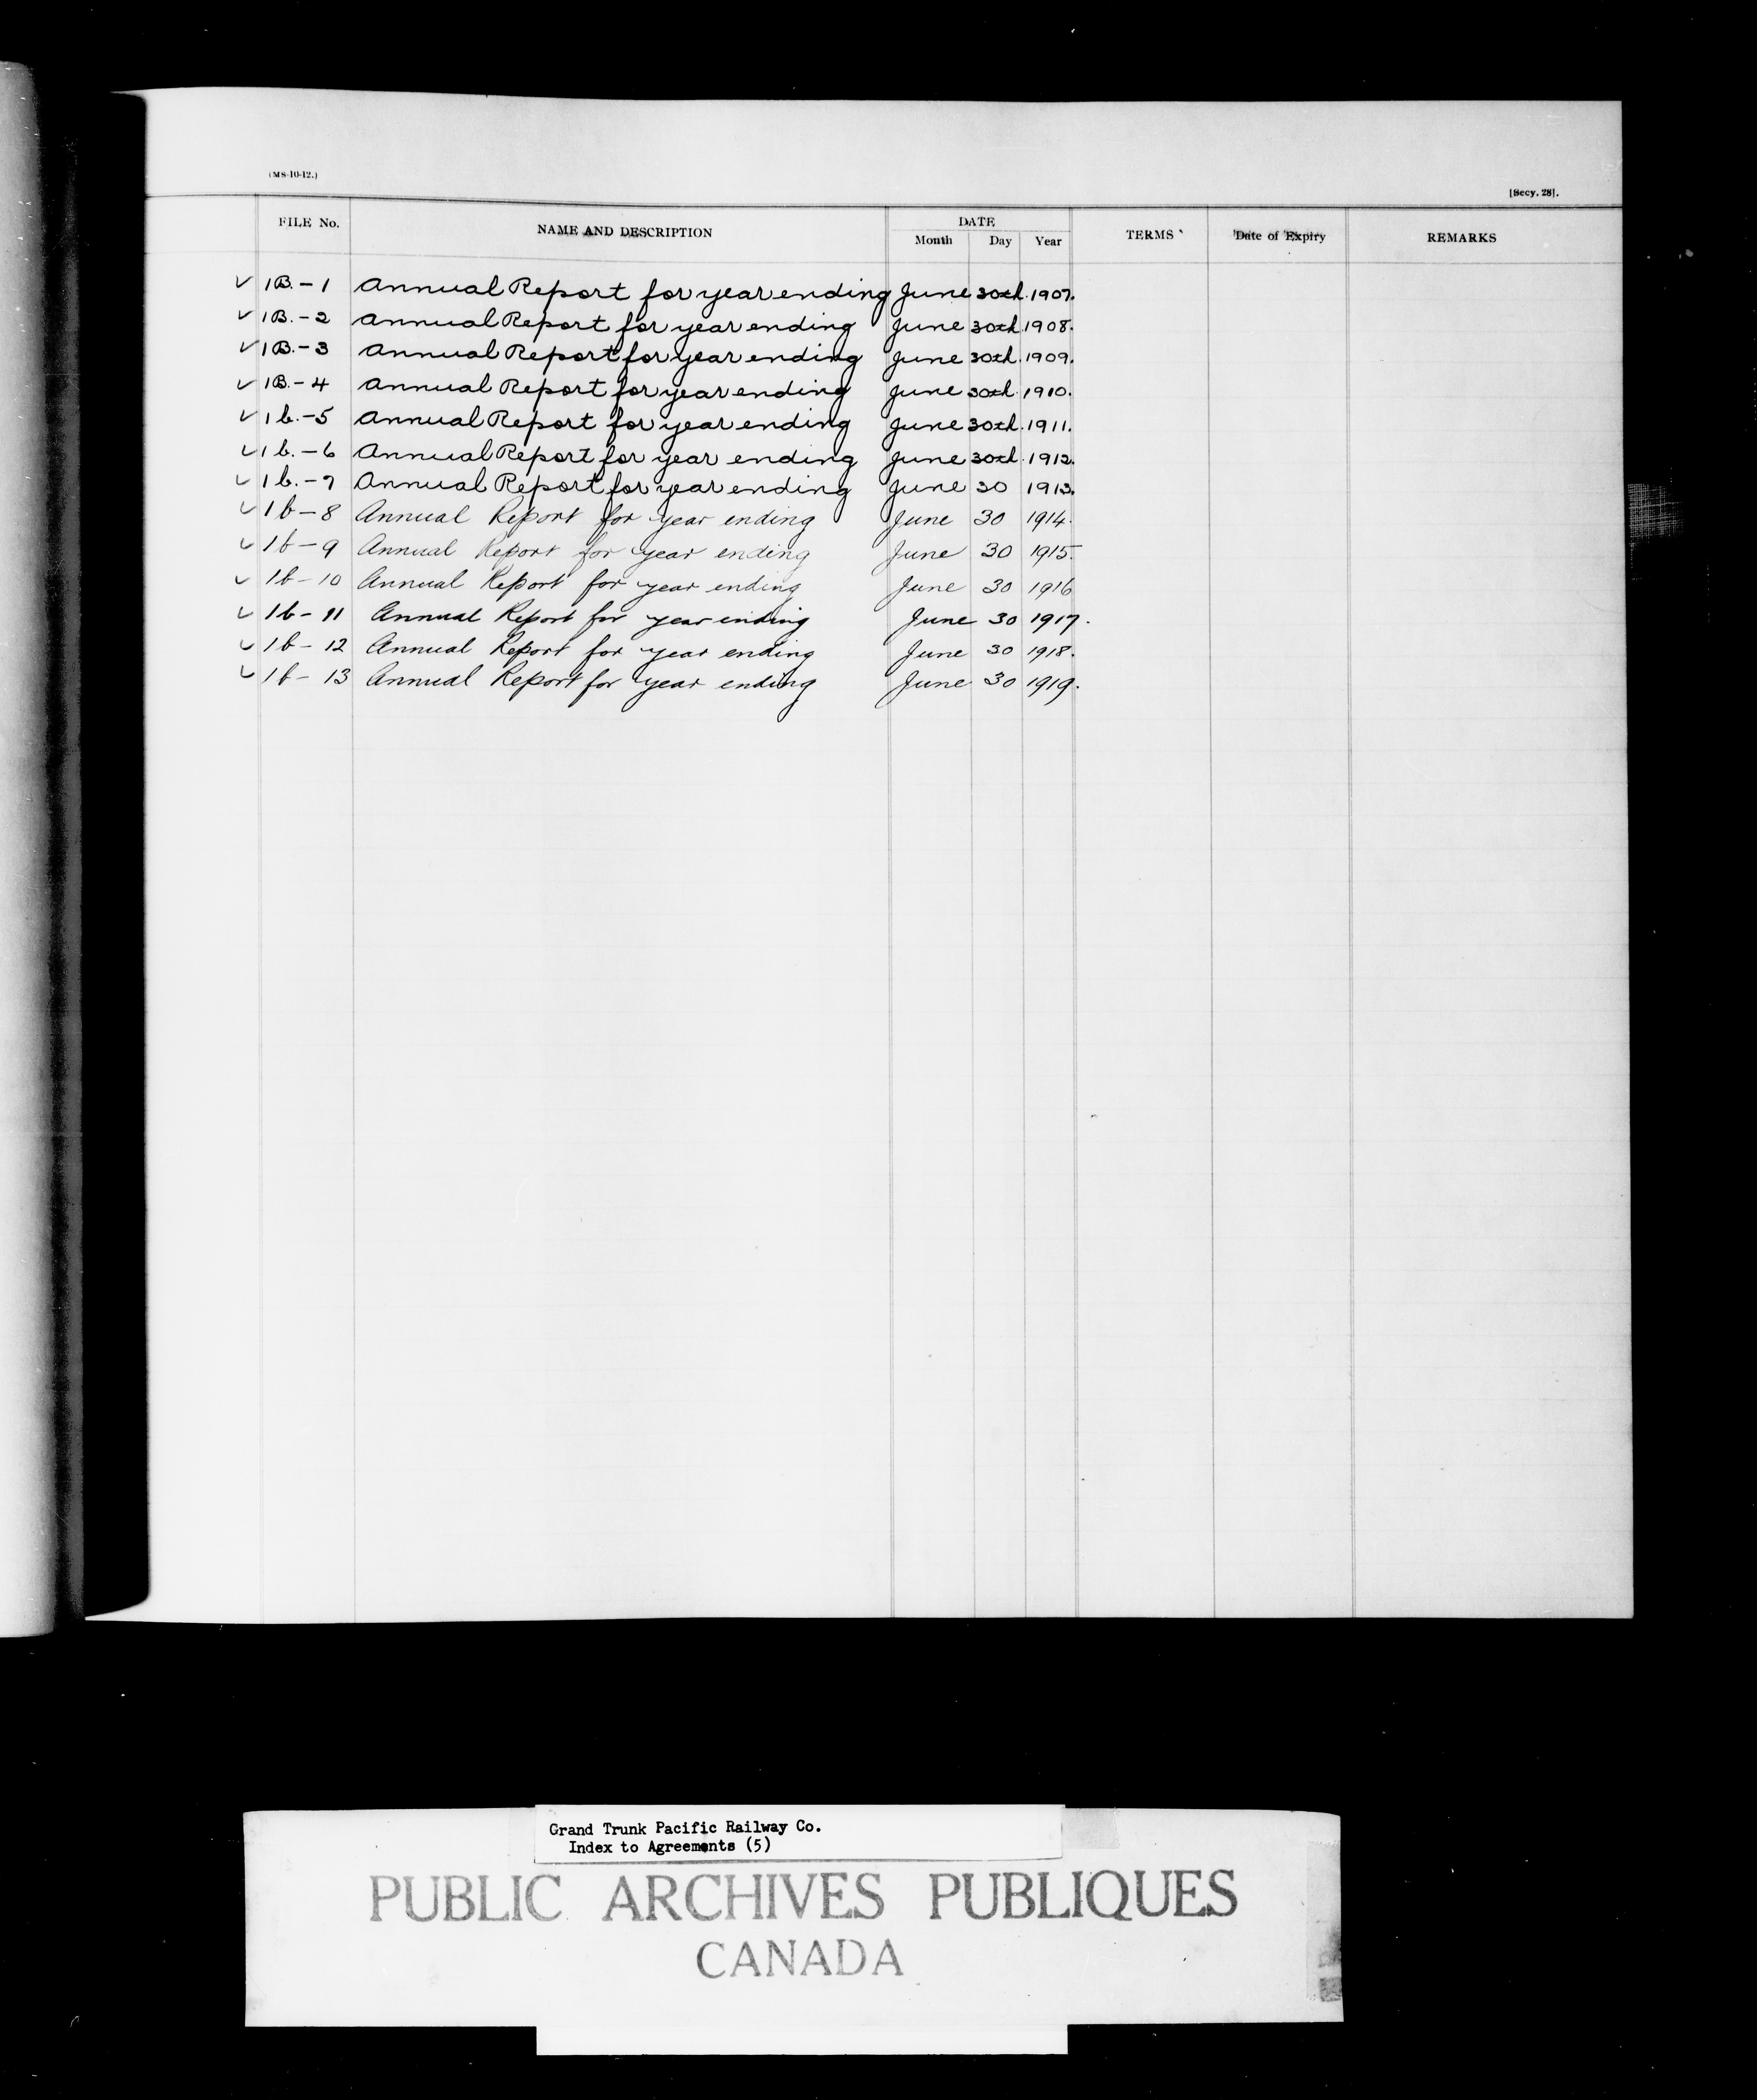 (MS-10-12.)
[Secy. 28].
FILE No. NAME AND DESCRIPTION DATE Month Day Year TERMS Date of Expiry REMARKS
✓ 1B.-1 Annual Report for year ending June 30th. 1907.
✓ 1B.-2 Annual Report for year ending June 30th. 1908.
✓ 1B.-3 Annual Report for year ending June 30th. 1909.
✓ 1B.-4 Annual Report for year ending June 30th. 1910.
✓ 1b.-5 Annual Report for year ending June 30th. 1911.
✓ 1b.-6 Annual Report for year ending June 30th. 1912.
✓ 1b.-7 Annual Report for year ending June 30 1913.
✓ 1b-8 Annual Report for year ending June 30 1914.
✓ 1b-9 Annual Report for year ending June 30 1915.
✓ 1b-10 Annual Report for year ending June 30 1916
✓ 1b-11 Annual Report for year ending June 30 1917.
✓ 1b-12 Annual Report for year ending June 30 1918.
✓ 1b-13 Annual Report for year ending June 30 1919.
Grand Trunk Pacific Railway Co.
Index to Agreements (5)
PUBLIC ARCHIVES PUBLIQUES
CANADA